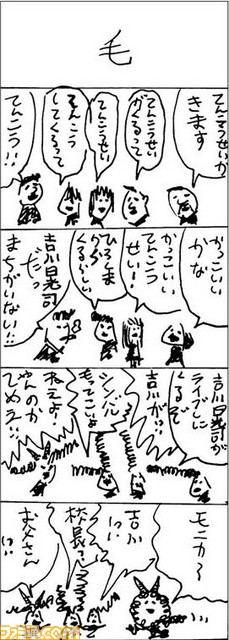 毛
てんこうせいが
きます
てんこうせい
がくるって
てんこうせい
てんこう
してくるって
てんこう!!
かっこいい
かな
かっこいい
てんこう
せい!
ひろくま
がくるらしい
吉川晃司
だっ
まちがいない!!
吉川晃司が
ライブしに
くるぞ
吉川が!?
シンバル
もってこいよ
ねえよ
やんのか
てめえ!
モニカ〜
吉川
!!
校長っ
お父さん
!!
ファミ通.com